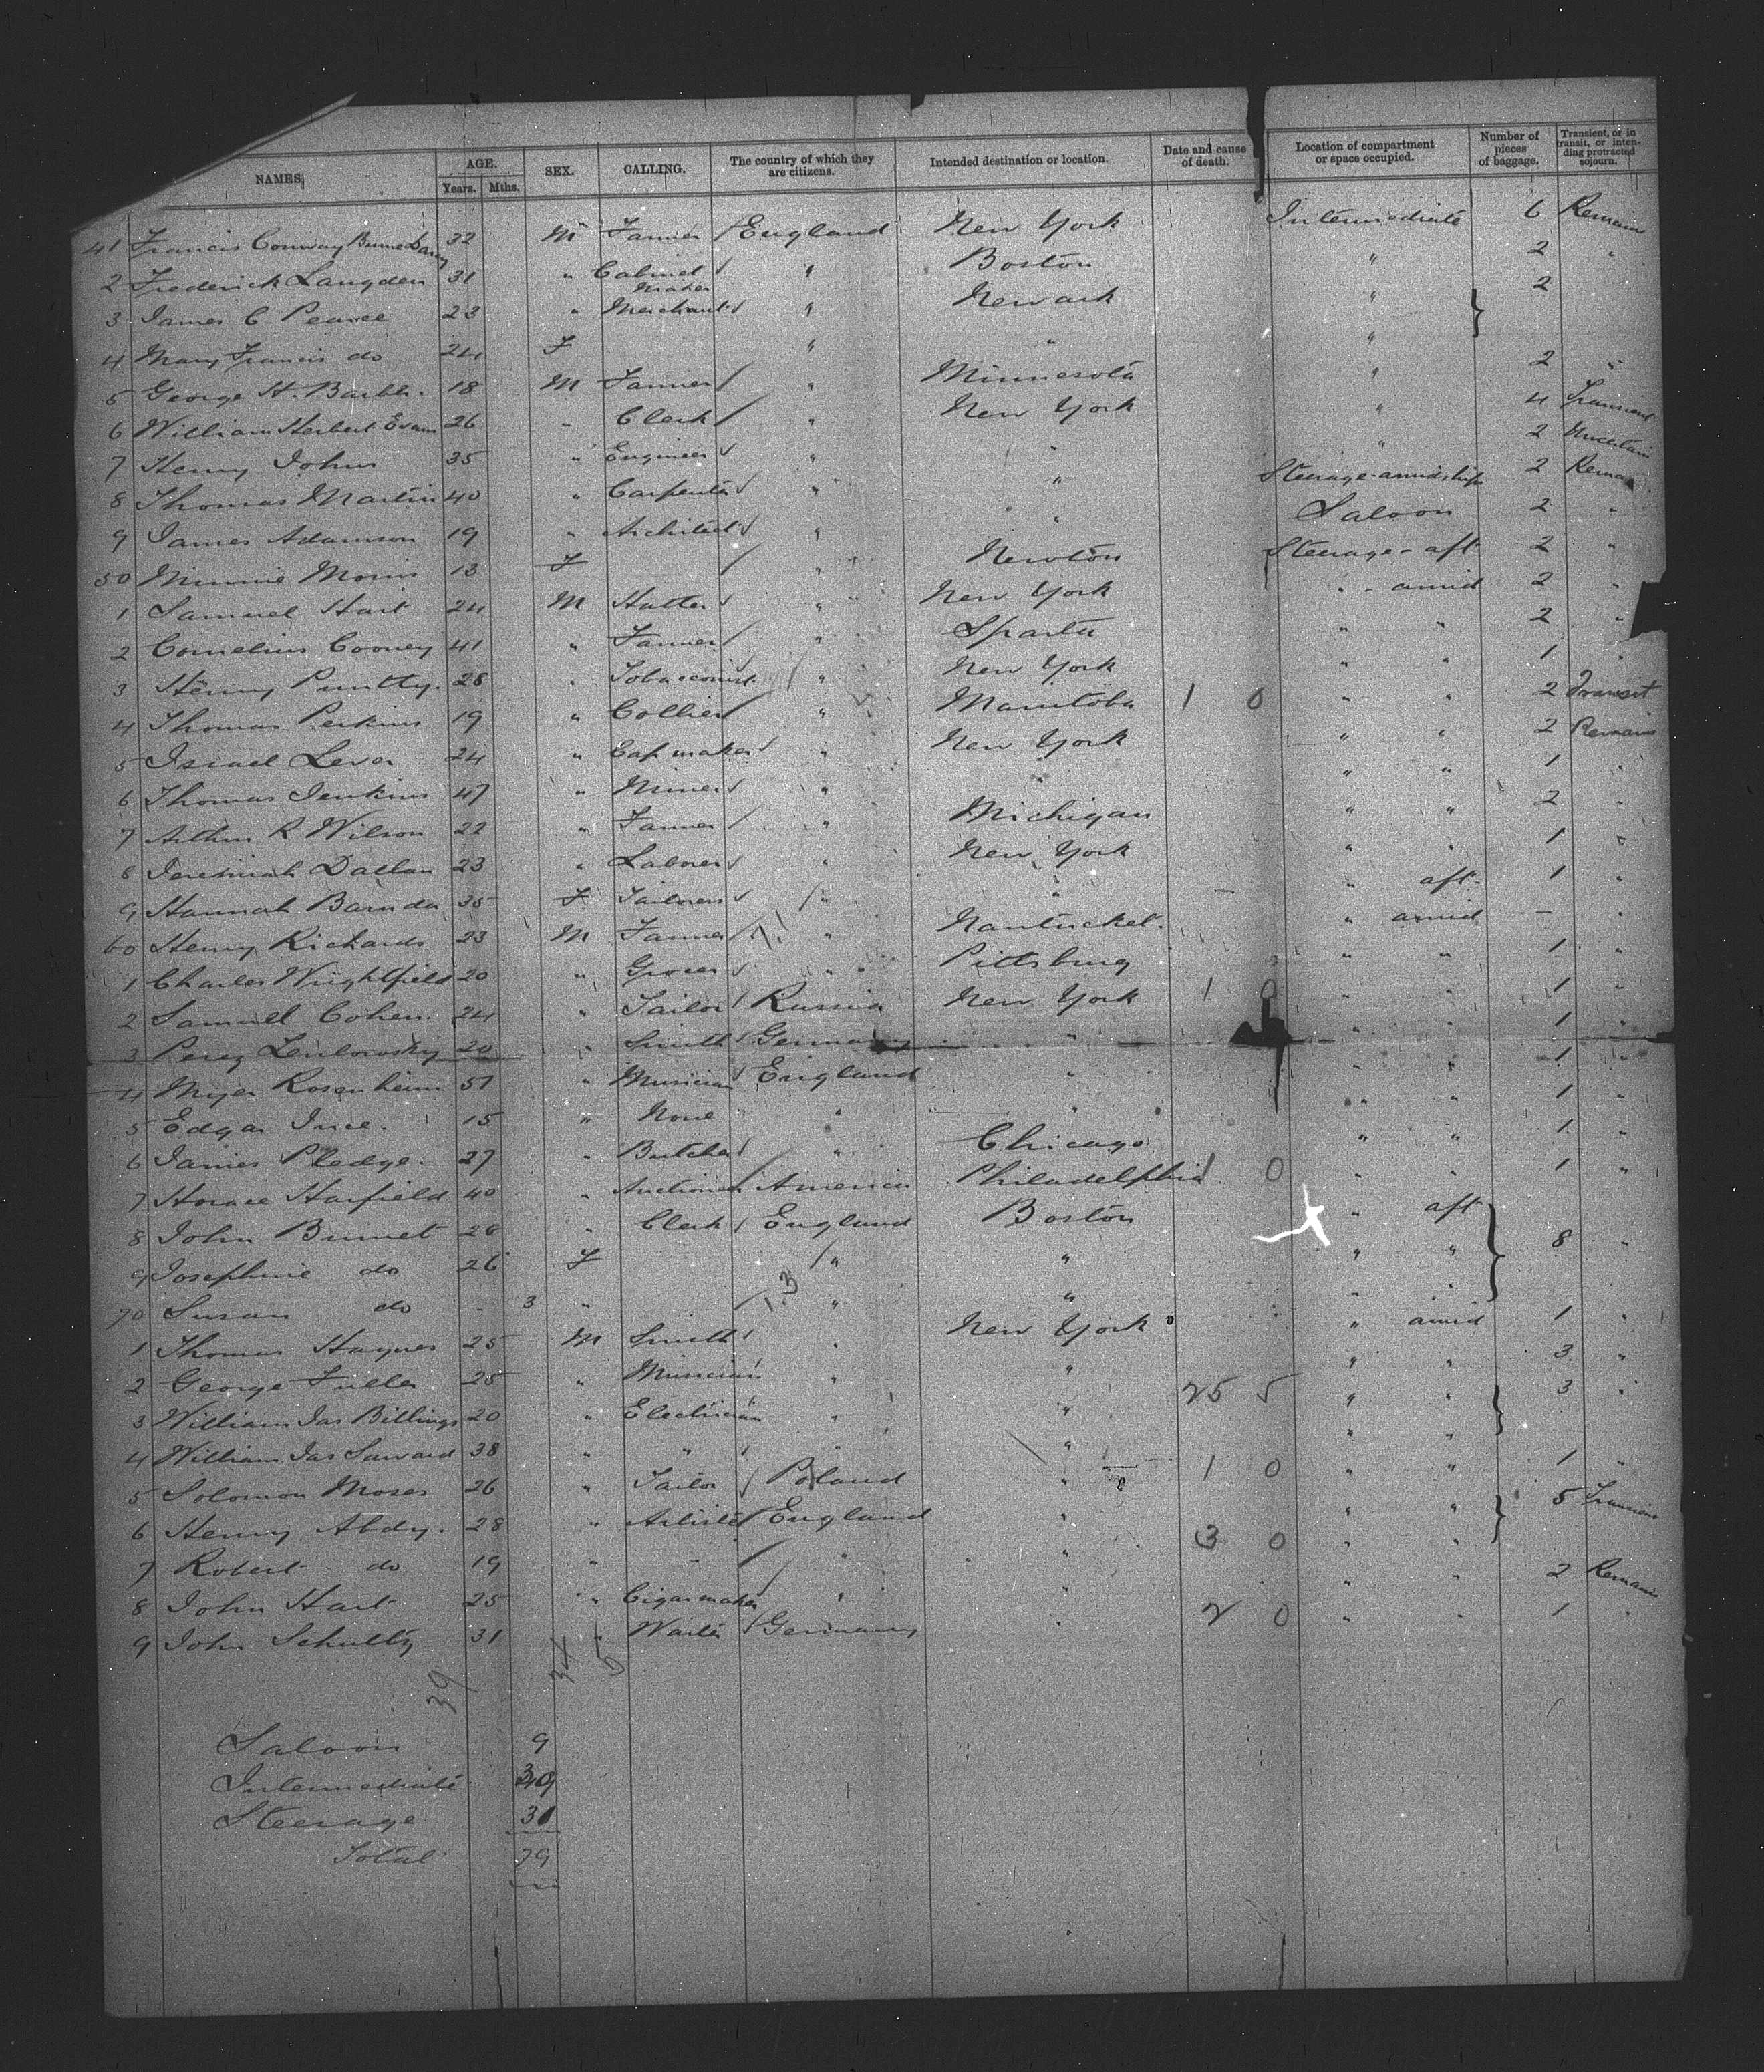 NAMES. AGE. Years. Mths. SEX. CALLING. The country of which they are citizens. Intended destination or location. Date and cause of death. Location of compartment or space occupied. Number of pieces of baggage. Transient, or in transit, or intending protracted sojourn.
41 Francis Conway 32 M Farmer England New York Intermediate 6 Remain
2 Frederick Langden 31 " Cabinet Maker " Boston " 2 "
3 James C Pearce 23 " Merchant " Newark " 2
4 Mary Francis do 24 F " " "
5 George H. 18 M Farmer " Minnesota " 2 "
6 William Herbert Evans 26 " Clerk " New York " 4 Transient
7 Henry Johns 35 " Engineer " " " 2 Uncertain
8 Thomas Martin 40 " Carpenter " " Steerage-amidships 2 Remain
9 James Adamson 19 " Architect " " Saloon 2 "
50 Minnie Morris 13 F " Newton Steerage-aft 2 "
1 Samuel Hart 24 M Hatter " New York " amid 2 "
2 Cornelius Cooney 41 " Farmer " Sparta " " 2 "
3 Henry Puntty. 28 " Tobacconist " New York " " 1 "
4 Thomas Perkins 19 " Collier " Manitoba 1 0 " " 2 Transit
5 Israel Lever 24 " Cap maker " New York " " 2 Remain
6 Thomas Jenkins 47 " Miner " " " " 1 "
7 Arthur R Wilson 22 " Farmer " Michigan " " 2 "
8 Jeremiah Dallan 23 " Laborer " New York " " 1 "
9 Hannah Barnda 35 F Tailoress " " " aft 1 "
60 Henry Richards 23 M Farmer " Nantucket. " amid - "
1 Charles Wrightfield 20 " Grocer " Pittsburg " " 1 "
2 Samuel Cohen. 24 " Tailor Russia New York 1 0 " " 1 "
3 Perez 20 " Smith Germany " " " 1 "
4 Myer Rosenheim 51 " Musician England " " " 1 "
5 Edgar Ince. 15 " None " " " " 1 "
6 James Pledge. 27 " Butcher " Chicago " " 1 "
7 Horace Harfield 40 " Auctioneer America Philadelphia 1 0 " " 1 "
8 John Burnet 28 " Clerk England Boston " aft
9 Josephine do 26 F " " " " 8 "
70 Susan do - 3 " " " " "
1 Thomas Haynes 25 M Smith " New York " amid 1 "
2 George Fuller 25 " Musician " " " " 3 "
3 William Jas Billings 20 " Electrician " " 25 5 " " 3 "
4 William Jas Saward 38 " " " " " "
5 Solomon Moses 26 " Tailor Poland " 1 0 " " 1 "
6 Henry Abdy. 28 " Artiste England " " " 5 Transient
7 Robert do 19 " " " " 3 0 " "
8 John Hart 25 " Cigar maker " " " " 2 Remain
9 John Schultz 31 " Waiter Germany " 2 0 " " 1 "
39 34 5
Saloon 9
Intermediate 39
Steerage 31
Total 79